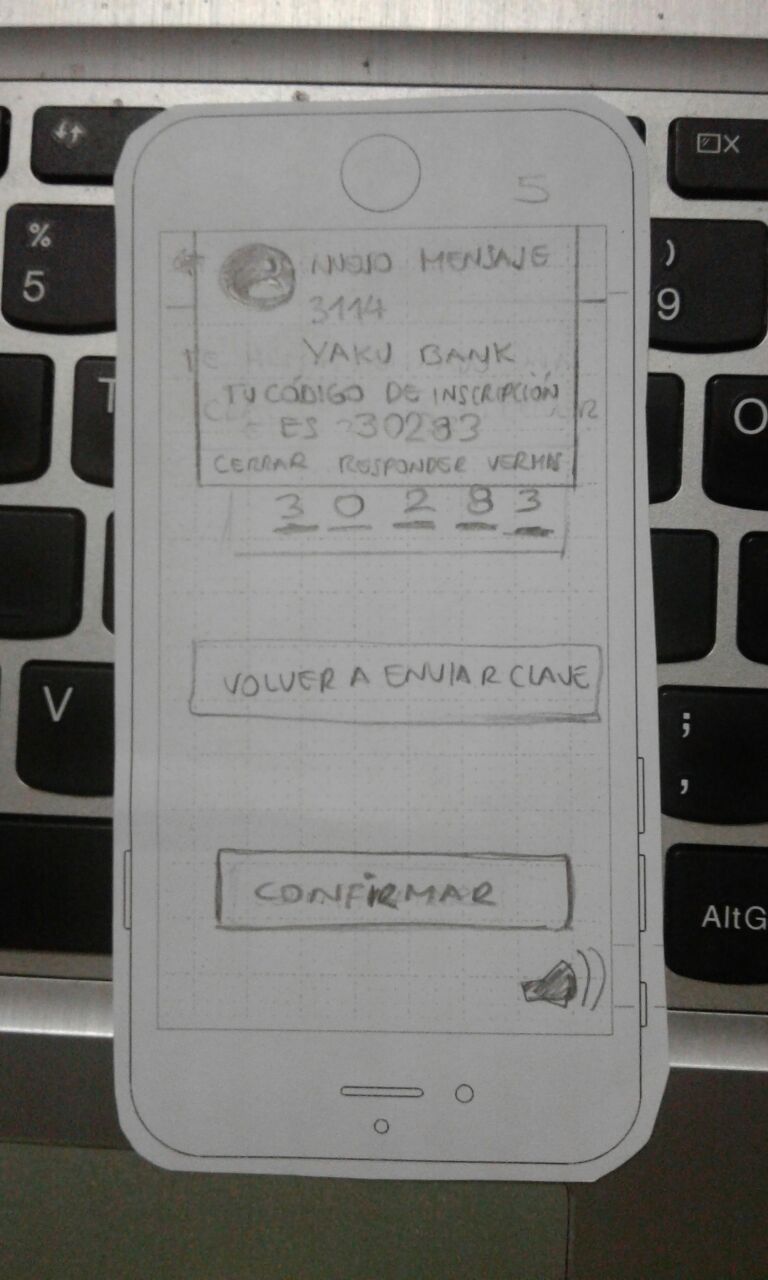 5
NUEVO MENSAJE
3114
YAKU BANK
TU CÓDIGO DE INSCRIPCIÓN
ES 30283
CERRAR RESPONDER VER MAS
3 0 2 8 3
VOLVER A ENVIAR CLAVE
CONFIRMAR
%
5
T
V
)
9
O
;
,
AltG